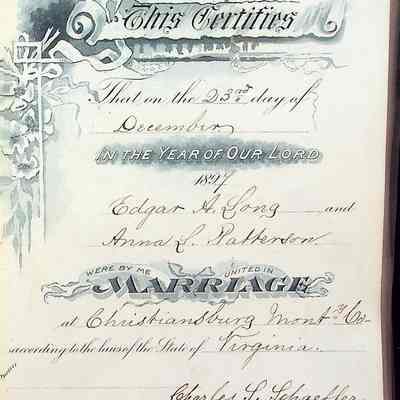 This Certifies
That on the 23rd day of
December
IN THE YEAR OF OUR LORD
1897
Edgar A. Long and
Anna L. Patterson.
WERE BY ME UNITED IN
MARRIAGE
at Christiansburg Mont'y Co.
according to the laws of the State of Virginia.
Charles S. Schaeffer